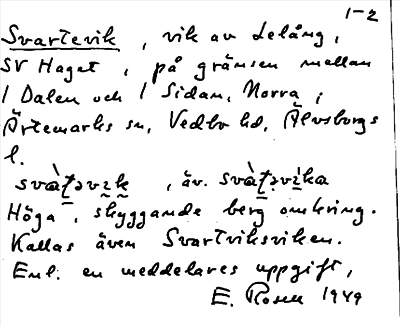 1-2
Svartevik, vik av Lelång,
SV Haget, på gränsen mellan
1 Dalen och 1 Sidan, Norra,
Ärtemarks sn, Vedbo hd, Älvsborgs
l.
svàt̲əvɪk, äv. svàt̲əvìka
Höga, skyggande berg omkring.
Kallas även Svartviksviken.
Enl. en meddelares uppgift,
E. Rosen 1949